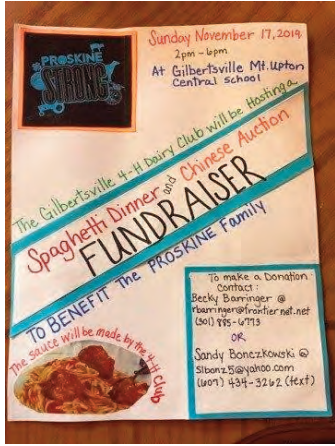 PROSKINE
STRONG
Sunday November 17, 2019
2pm - 6pm
At Gilbertsville Mt. Upton
Central school
The Gilbertsville 4-H Dairy Club will be Hosting a
Spaghetti Dinner and Chinese Auction
FUNDRAISER
TO BENEFIT The PROSKINE Family
The sauce will be made by the 4-H club
To make a Donation
Contact:
Becky Barringer @
rbarringer@frontiernet.net
(301) 885-6773
OR
Sandy Bonczkowski @
Slbonz5@yahoo.com
(607) 434-3262 (text)